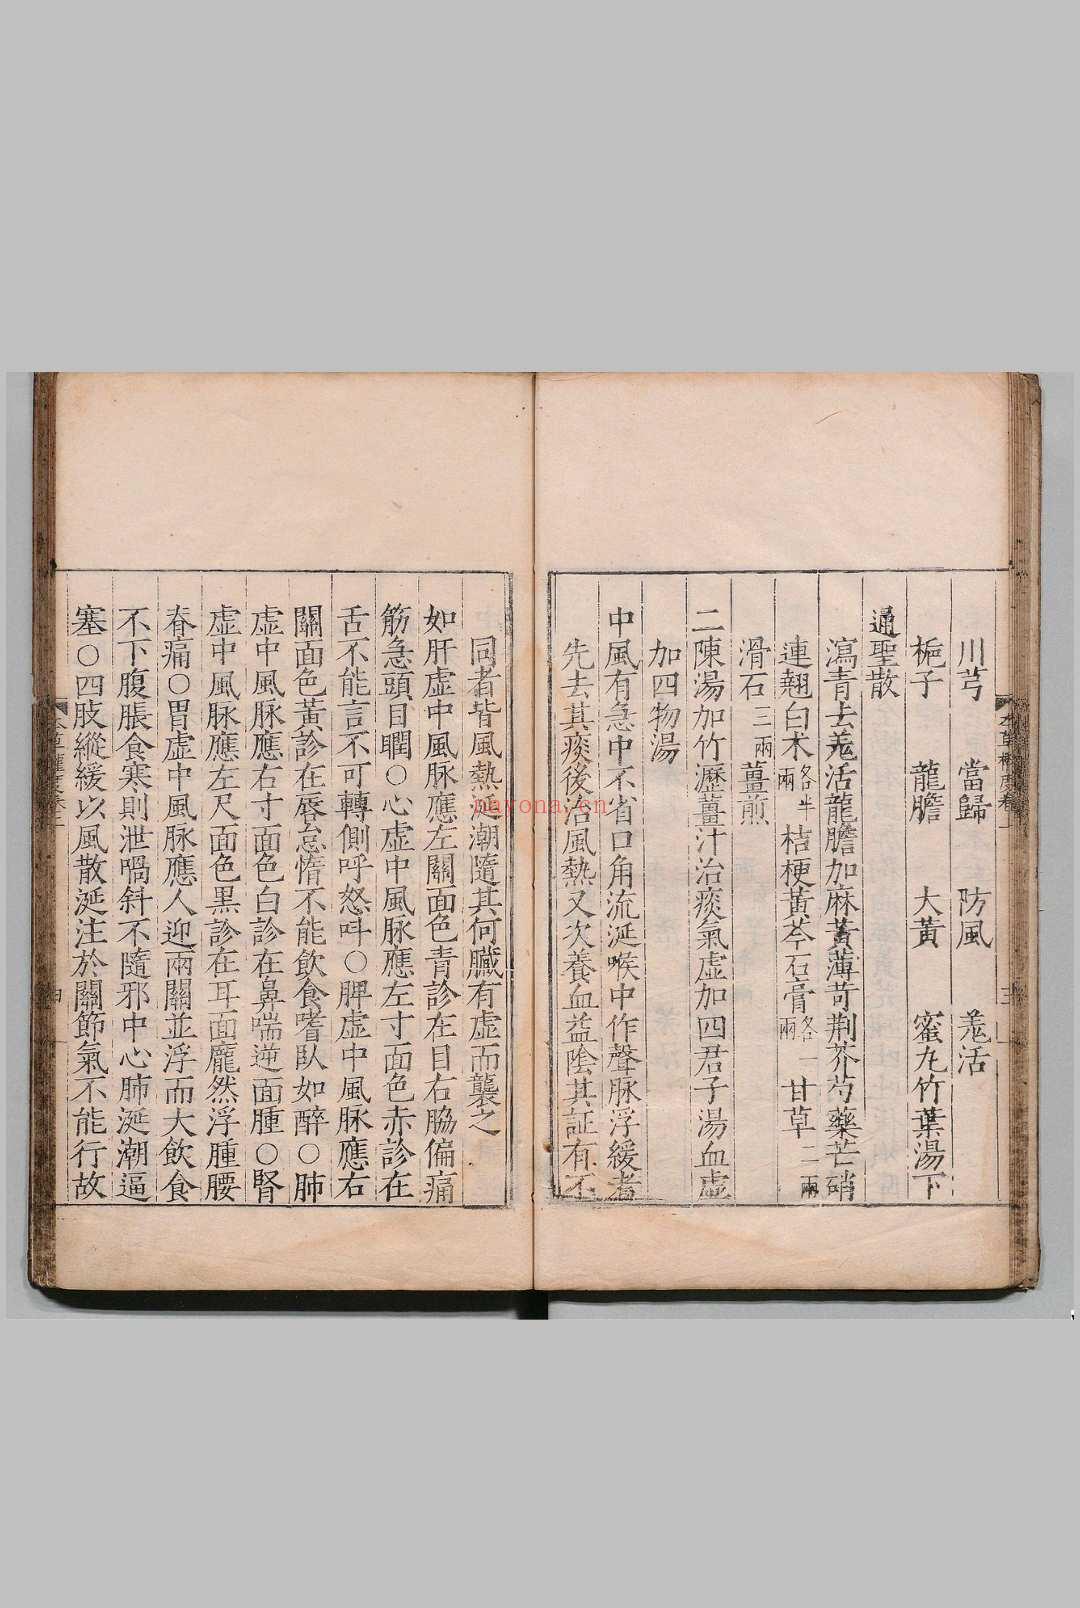 川芎 當歸 防風 羗活
梔子 龍膽 大黃 蜜丸竹葉湯下
通聖散
瀉青去羗活龍膽加麻黃薄苛荆芥芍藥芒硝
連翹白术各半兩桔梗黃芩石膏各一兩甘草二兩
滑石三兩薑煎
二陳湯加竹瀝薑汁治痰氣虛加四君子湯血虛
加四物湯
中風有急中不省口角流涎喉中作聲脉浮緩者
先去其痰後治風熱又次養血益陰其証有不
同者皆風熱涎潮隨其何臟有虛而襲之
如肝虛中風脉應左關面色青診在目右脇偏痛
筋急頭目瞤○心虛中風脉應左寸面色赤診在
舌不能言不可轉側呼怒呌○脾虛中風脉應右
關面色黃診在唇怠惰不能飲食嗜臥如醉○肺
虛中風脉應右寸面色白診在鼻喘逆面腫○腎
虛中風脉應左尺面色黑診在耳面龐然浮腫腰
脊痛○胃虛中風脉應人迎兩關並浮而大飲食
不下腹脹食寒則泄喎斜不隨邪中心肺涎潮逼
塞○四肢縱緩以風散涎注於關節氣不能行故
nayona.cn